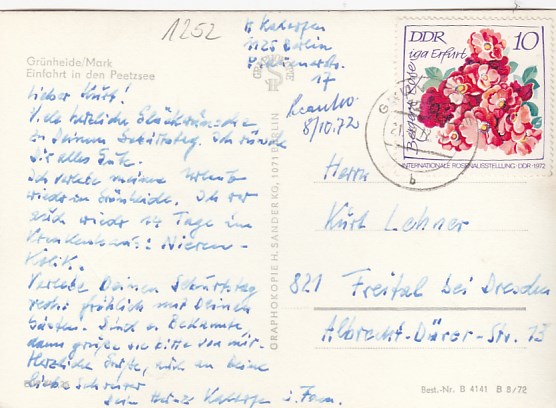 1252
H Kakerfen
1125 Berlin
17
Grünheide/Mark
Einfahrt in den Peetzsee
Lieber Kurt!
Viele herzliche Glückwünsche
zu Deinem Geburtstag. Ich wünsche
Dir alles Gute.
Ich verlebe meinen Urlaub
wieder in Grünheide. Ich war
auch wieder 14 Tage im
Krankenhaus: Nieren-
Kolik.
Verlebe Deinen Geburtstag
recht fröhlich mit Deinen
Gästen. Sind es Bekannte,
dann grüße sie bitte von mir.
Herzliche Grüße, auch an Deine
liebe
Dein Heinz i. Fam.
GRAPHOKOPIE H. SANDER KG, 1071 BERLIN
8/10.72
DDR 10
iga Erfurt
INTERNATIONALE ROSENAUSSTELLUNG · DDR · 1972
b
Herrn
Kurt Lehner
821 Freital bei Dresden
Albrecht-Dürer-Str. 13
Best.-Nr. B 4141 B 8/72